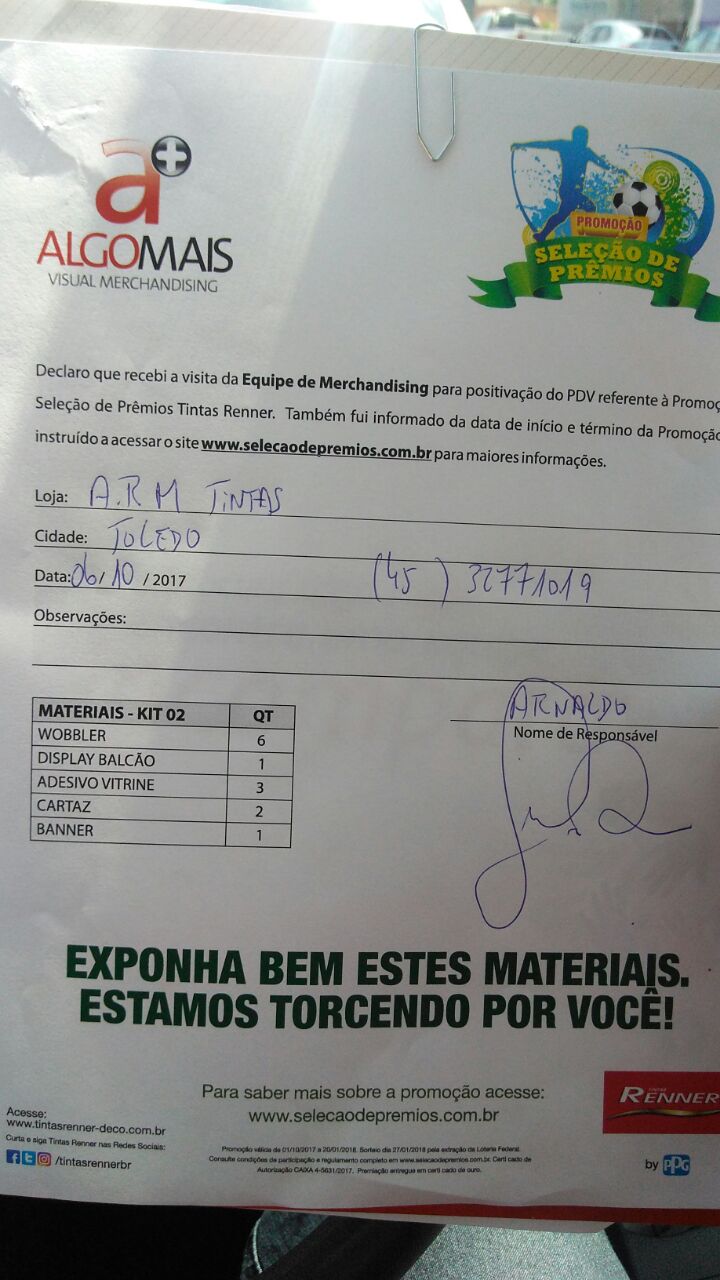 a+
ALGOMAIS
VISUAL MERCHANDISING
PROMOÇÃO
SELEÇÃO DE
PRÊMIOS
Declaro que recebi a visita da Equipe de Merchandising para positivação do PDV referente à Promoç
Seleção de Prêmios Tintas Renner. Também fui informado da data de início e término da Promoção
instruído a acessar o site www.selecaodepremios.com.br para maiores informações.
Loja: A.R.M TINTAS
Cidade: TOLEDO
Data: 06/10/2017 (45) 32771019
Observações:
MATERIAIS - KIT 02 QT
WOBBLER 6
DISPLAY BALCÃO 1
ADESIVO VITRINE 3
CARTAZ 2
BANNER 1
ARNALDO
Nome de Responsável
EXPONHA BEM ESTES MATERIAIS.
ESTAMOS TORCENDO POR VOCÊ!
Para saber mais sobre a promoção acesse:
www.selecaodepremios.com.br
TINTAS
RENNER
by PPG
Acesse:
www.tintasrenner-deco.com.br
Curta e siga Tintas Renner nas Redes Sociais:
/tintasrennerbr
Promoção válida de 01/10/2017 a 20/01/2018. Sorteio dia 27/01/2018 pela extração da Loteria Federal.
Consulte condições de participação e regulamento completo em www.selecaodepremios.com.br. Certificado de
Autorização CAIXA 4-5631/2017. Premiação entregue em certificado de ouro.